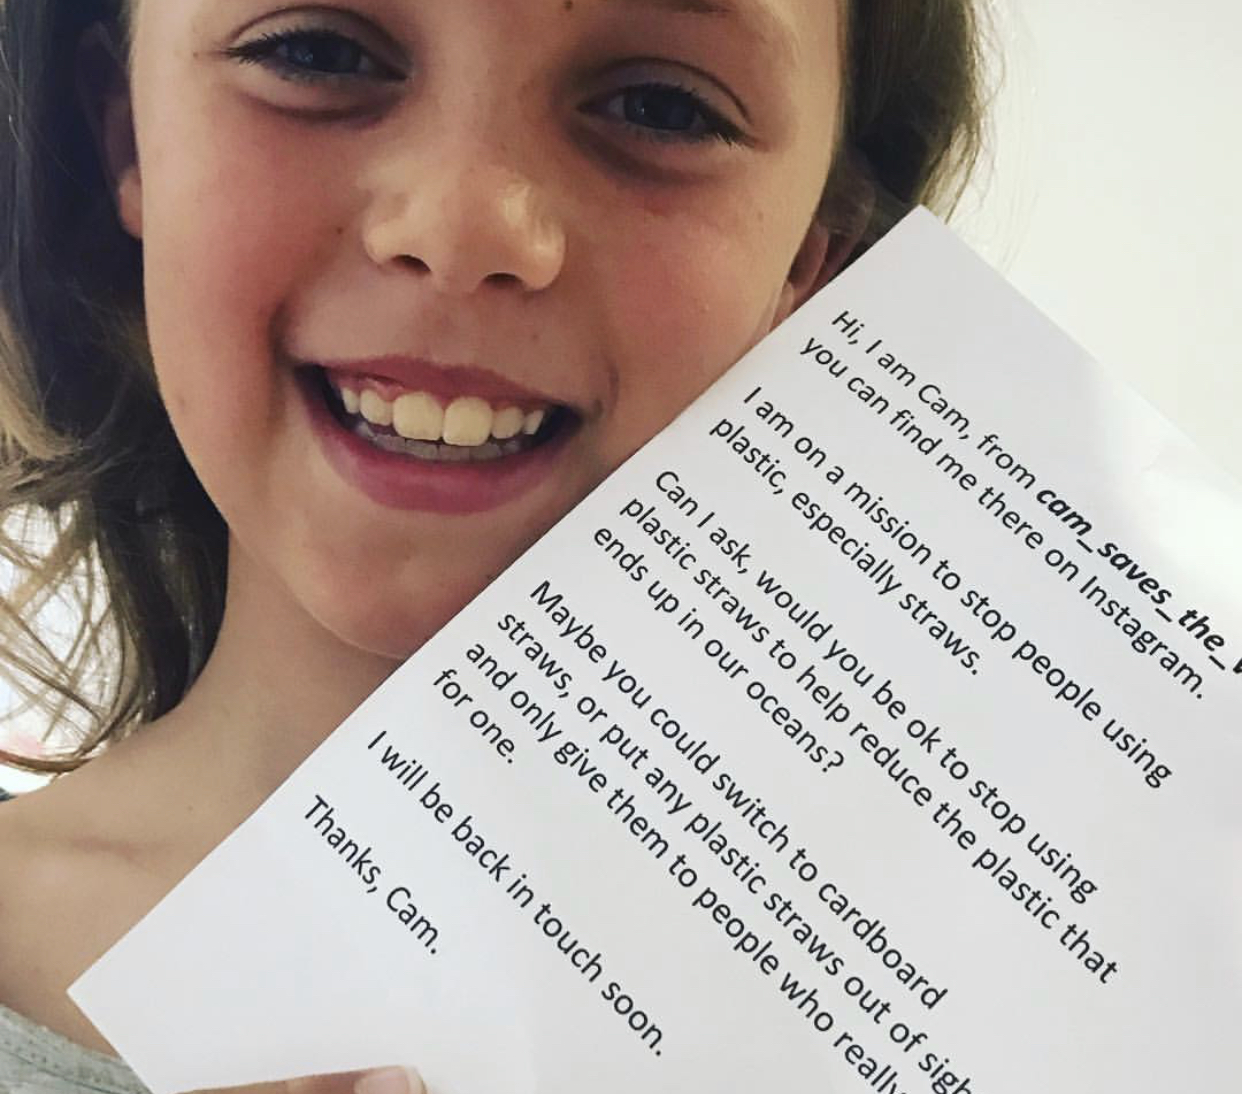 Hi, I am Cam, from cam_saves_the_
you can find me there on Instagram.
I am on a mission to stop people using
plastic, especially straws.
Can I ask, would you be ok to stop using
plastic straws to help reduce the plastic that
ends up in our oceans?
Maybe you could switch to cardboard
straws, or put any plastic straws out of
and only give them to people who really
for one.
I will be back in touch soon.
Thanks, Cam.